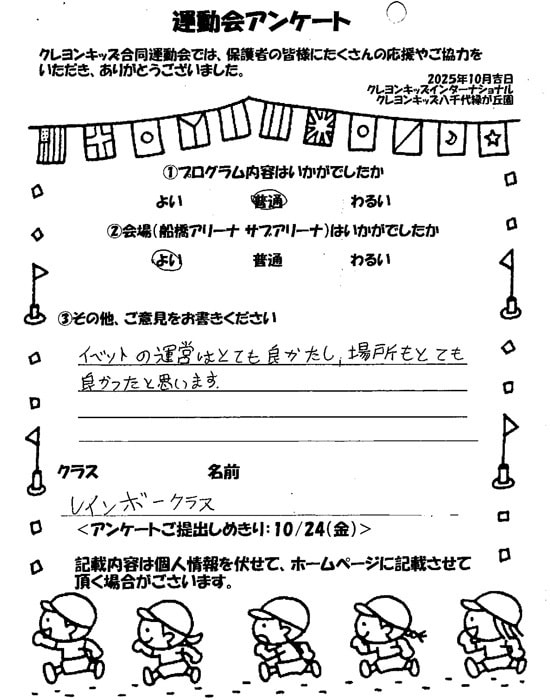 運動会アンケート
クレヨンキッズ合同運動会では、保護者の皆様にたくさんの応援やご協力を
いただき、ありがとうございました。
2025年10月吉日
クレヨンキッズインターナショナル
クレヨンキッズ八千代緑が丘園
①プログラム内容はいかがでしたか
よい 普通 わるい
②会場(船橋アリーナ サブアリーナ)はいかがでしたか
よい 普通 わるい
③その他、ご意見をお書きください
イベットの運営はとても良かたし、場所もとても
良かったと思います.
クラス 名前
レインボークラス
<アンケートご提出しめきり:10/24(金)>
記載内容は個人情報を伏せて、ホームページに記載させて
頂く場合がございます。